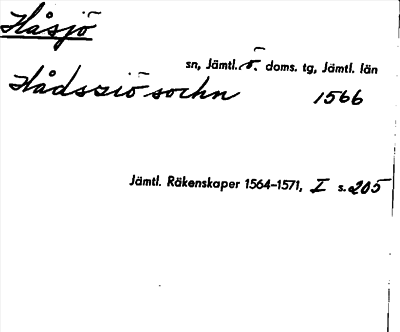 Håsjö
sn, Jämtl. ö. doms. tg, Jämtl. län
Hådssiö sochn 1566
Jämtl. Räkenskaper 1564–1571, I s. 205